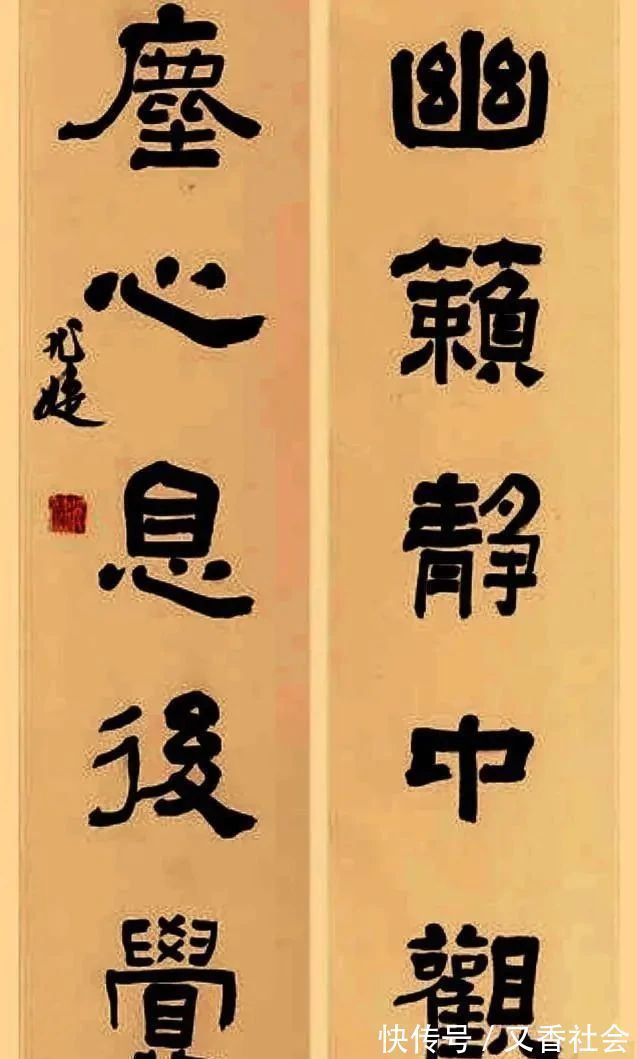 幽籟靜中觀
塵心息後覺
快传号 / 又香社会